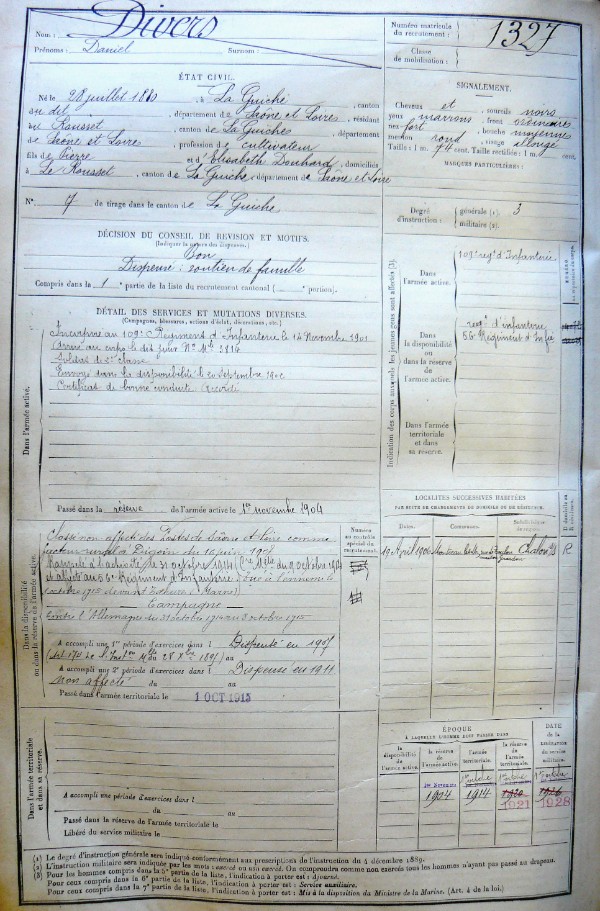 Nom : Divers
Prénoms : Daniel Surnom :
Numéro matricule
du recrutement : 1327
Classe
de mobilisation :
ÉTAT CIVIL.
Né le 28 juillet 1880, à La Guiche, canton
du dit, département de Saône et Loire, résidant
au Rousset, canton de La Guiche, département
de Saône et Loire, profession de cultivateur
fils de Pierre et d'Elisabeth, domiciliés
à Le Rousset, canton de La Guiche, département de Saône et Loire
N° 7 de tirage dans le canton de La Guiche
SIGNALEMENT.
Cheveux et sourcils noirs
yeux marrons, front ordinaire
nez fort, bouche moyenne
menton rond, visage allongé
Taille : 1 m. 74 cent. Taille rectifiée : 1 m. cent.
MARQUES PARTICULIÈRES :
Degré
d'instruction :
générale (1). 3
militaire (2).
DÉCISION DU CONSEIL DE REVISION ET MOTIFS.
(Indiquer la nature des dispenses.)
Bon
Dispensé : soutien de famille
Compris dans la 1e partie de la liste du recrutement cantonal ( portion).
DÉTAIL DES SERVICES ET MUTATIONS DIVERSES.
(Campagnes, blessures, actions d'éclat, décorations, etc.)
Dans l'armée active.
Incorporé au 109e Régiment d'Infanterie le 14 Novembre 1901
Arrivé au corps le dit jour N° Mle 3816
Soldat de 2e classe
Envoyé dans la disponibilité le 20 Septembre 1902
Certificat de bonne conduite accordé
Passé dans la réserve de l'armée active le 1er novembre 1904
Indication des corps auxquels les jeunes gens sont affectés (3).
Dans
l'armée active.
109e régt d'Infanterie
Dans
la disponibilité
ou dans
la réserve de
l'armée active.
régt d'infanterie
56 Régiment d'Infie
Dans l'armée
territoriale
et dans
sa réserve.
LOCALITÉS SUCCESSIVES HABITÉES
PAR SUITE DE CHANGEMENTS DE DOMICILE OU DE RÉSIDENCE.
Dates. Communes. Subdivisions de région. D domicile ou R résidence.
19 April 1904 Chalon R
Dans la disponibilité
ou dans la réserve de l'armée active.
Numéro
au contrôle
spécial du
recrutement.
Classé non affecté des Postes de Saône et Loire comme
facteur rural à Digoin du 10 juin 1908
Rappelé à l'activité le 31 octobre 1914
et affecté au 56e Régiment d'Infanterie.
octobre 1915 devant Tahure (Marne)
Campagne
Contre l'Allemagne du 31 octobre 1914 au 3 octobre 1915
A accompli une 1re période d'exercices dans l Dispensé en 1907
A accompli une 2e période d'exercices dans l Dispensé en 1911
non affecté du au
Passé dans l'armée territoriale le 1 OCT 1913
Dans l'armée territoriale
et dans sa réserve.
A accompli une période d'exercices dans l
du au
Passé dans la réserve de l'armée territoriale le
Libéré du service militaire le
ÉPOQUE
À LAQUELLE L'HOMME DOIT PASSER DANS
la disponibilité de l'armée active.
la réserve de l'armée active.
l'armée territoriale.
la réserve de l'armée territoriale.
DATE
de la
LIBÉRATION
du service
militaire.
1er Novembre 1er octobre 1er octobre 1er octobre
1904 1914 1920 1926
1921 1928
(1) Le degré d'instruction générale sera indiqué conformément aux prescriptions de l'instruction du 4 décembre 1889.
(2) L'instruction militaire sera indiquée par les mots exercé ou non exercé. On comprendra comme non exercés tous les hommes n'ayant pas passé au drapeau.
(3) Pour les hommes compris dans la 5e partie de la liste, l'indication à porter est : Ajourné.
Pour ceux compris dans la 6e partie de la liste, l'indication à porter est : Service auxiliaire.
Pour ceux compris dans la 7e partie de la liste, l'indication à porter est : Mis à la disposition du Ministre de la Marine. (Art. 4 de la loi.)